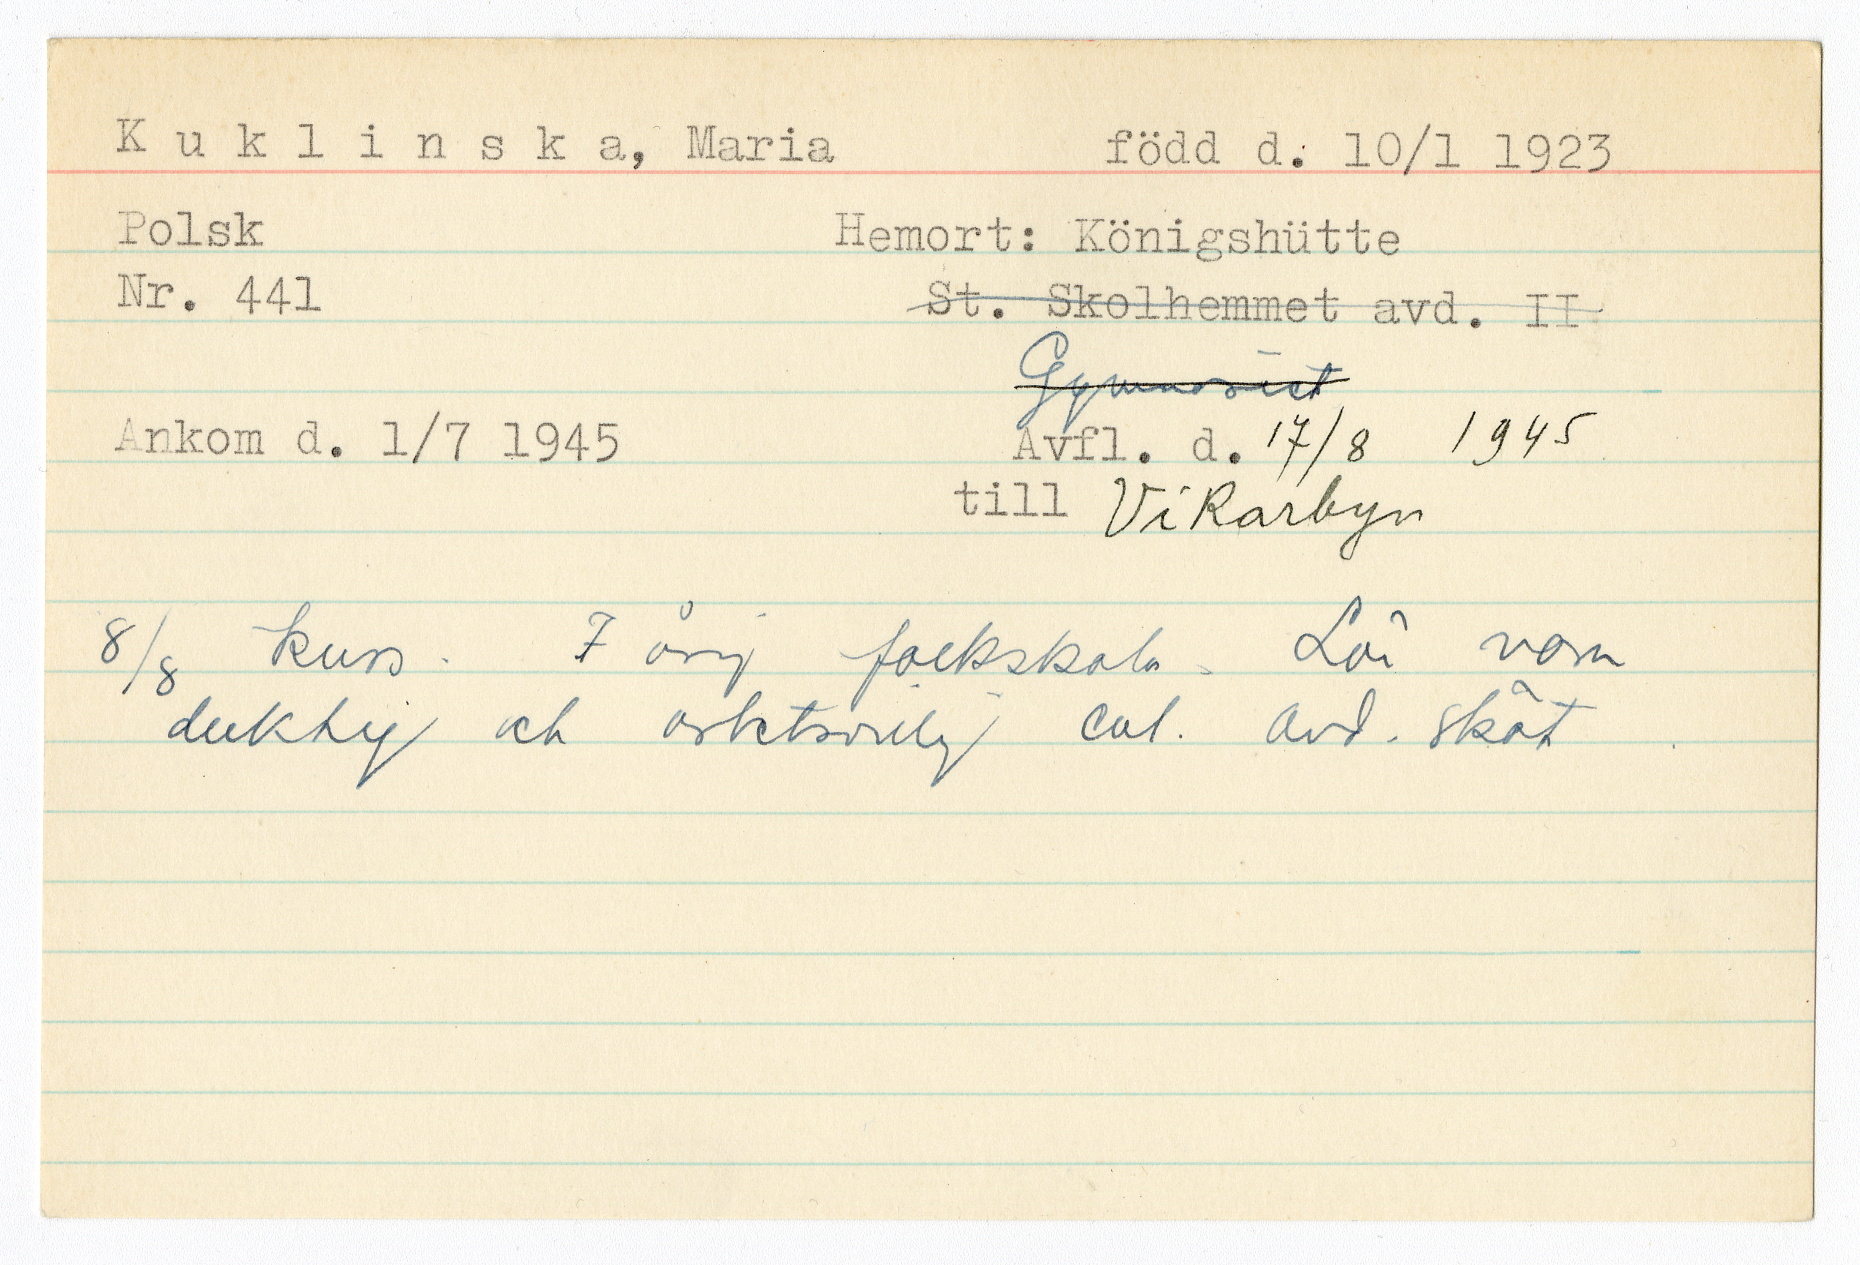 Kuklinska, Maria född d. 10/1 1923
Polsk Hemort: Königshütte
Nr. 441 St. Skolhemmet avd. II
Gymnasiet
Ankom d. 1/7 1945 Avfl. d. 17/8 1945
till Vikarbyn
8/8 kurs. 7 årig folkskola. Lär vara
duktig och arbetsvillig enl. avd. sköt